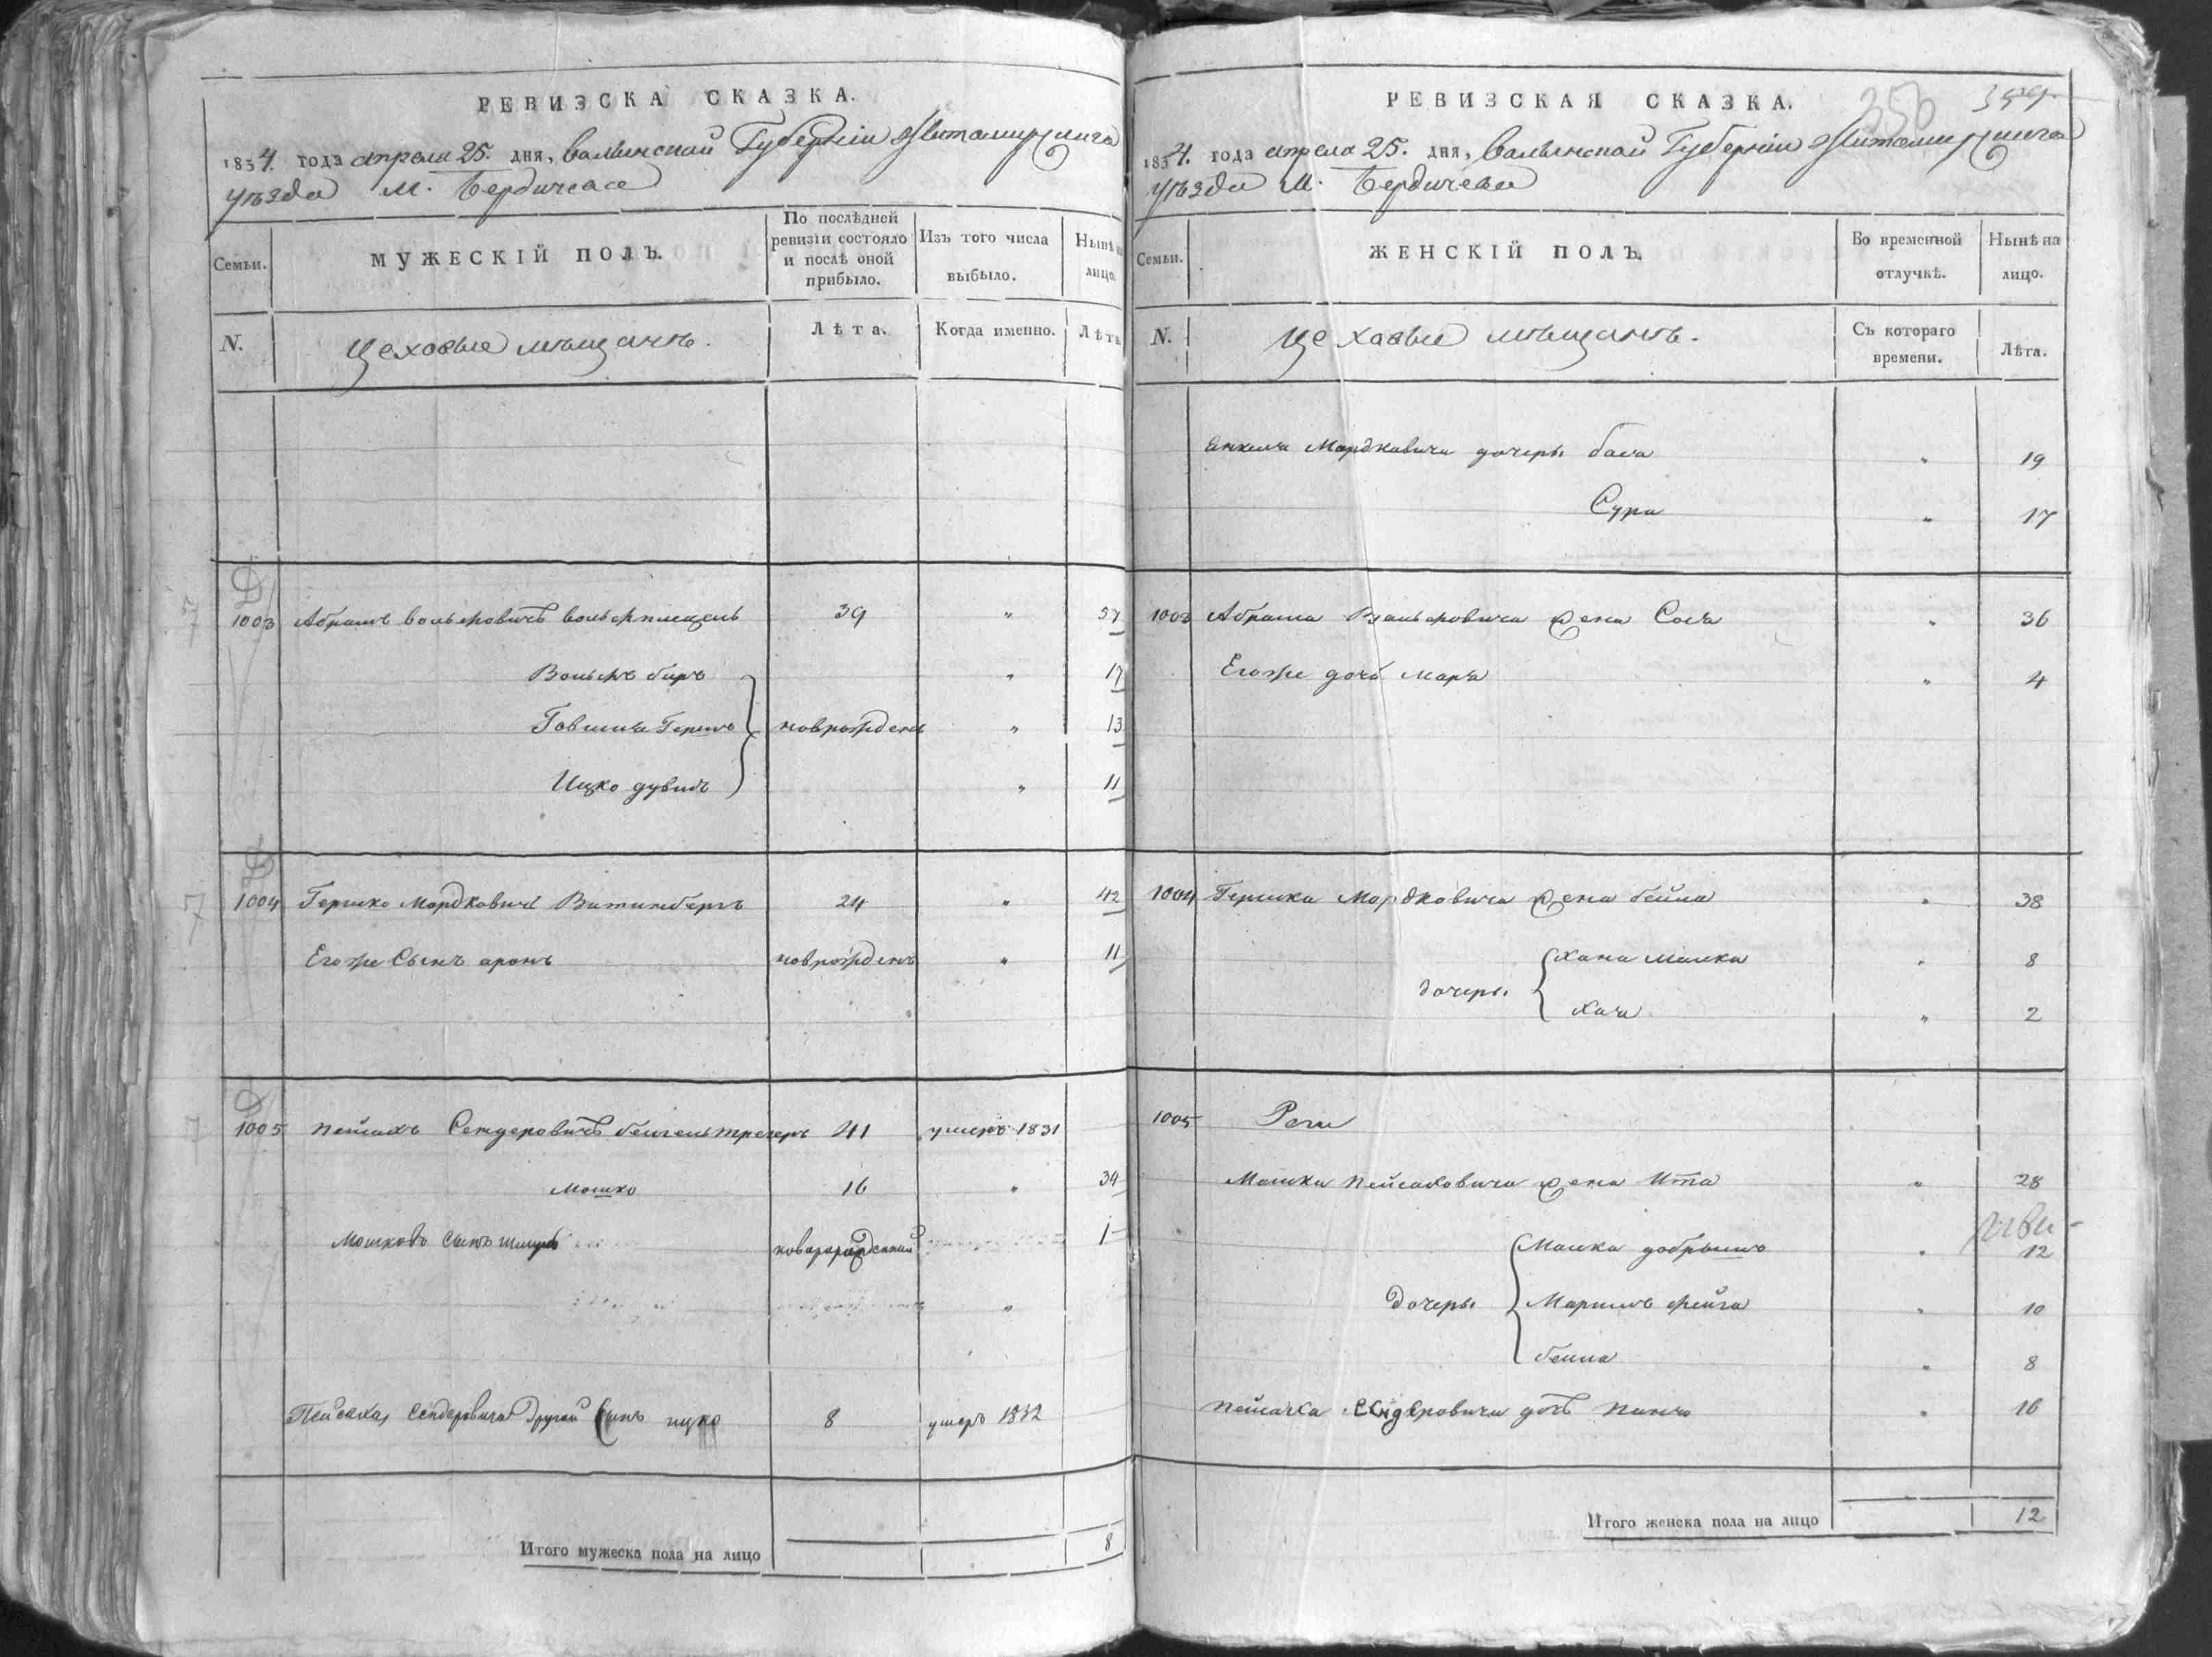 РЕВИЗСКА СКАЗКА.
1834. года апреля 25. дня, Волынской Губернии Житомирского
уѣзда М. Бердичева
Семьи.
МУЖЕСКІЙ ПОЛЪ.
По послѣдней ревизіи состояло и послѣ оной прибыло.
Изъ того числа выбыло.
Нынѣ на лицо.
N.
Цеховые мѣщанѣ.
Лѣта.
Когда именно.
Лѣта
1003 Абрамъ Вольвовичъ 39 " 57
" 17
Гершъ новрожденъ " 13
Ицко Дувидъ " 11
1004 Гершко Мордковичъ Витинбергъ 24 " 42
Егоже Сынъ аронъ новрожденъ " 11
1005 Пейсахъ Сендеровичъ 41 умеръ 1831
Мошко 16 " 34
Мошковъ Сынъ 1
"
Пейсаха Сендеровича другой Сынъ ицко 8 умеръ 1832
Итого мужеска пола на лицо 8
РЕВИЗСКАЯ СКАЗКА.
350
1834. года апреля 25. дня, Волынской Губернии Житомирского
уѣзда М. Бердичева
Семьи.
ЖЕНСКІЙ ПОЛЪ.
Во временной отлучкѣ.
Нынѣ на лицо.
N.
Цеховые мѣщанѣ.
Съ котораго времени.
Лѣта.
Мордковича дочеры бася " 19
Сура " 17
1003 Абрама жена Сося " 36
Егоже дочь Маря " 4
1004 Гершка Мордковича жена бейла " 38
Хана Малка " 8
дочеры
Хая " 2
1005
Мошки Пейсаховича жена Ита " 28
Малка добрышъ " 12
дочеры Маримъ фейга " 10
бейла " 8
дочь " 16
Итого женска пола на лицо 12